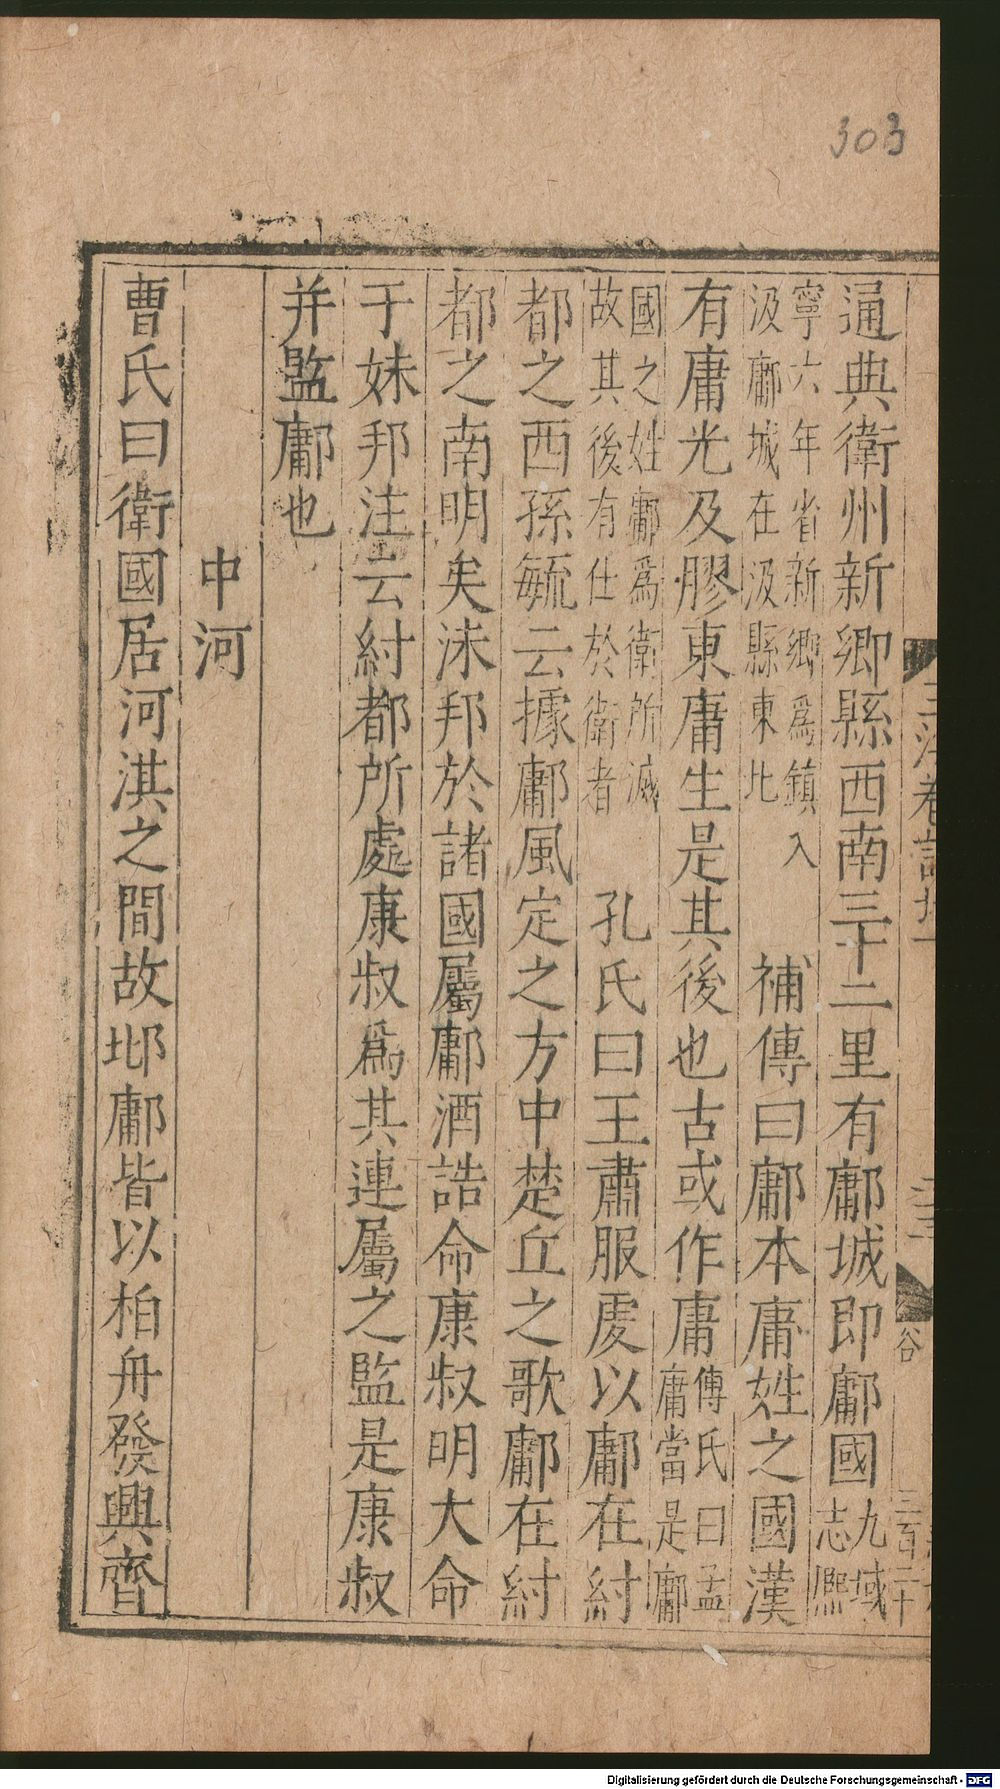 303
通典衛州新鄉縣西南三十二里有鄘城即鄘國九域志熈
寧六年省新鄉為鎮入汲鄘城在汲縣東北補傳曰鄘本庸姓之國漢
有庸光及膠東庸生是其後也古或作庸傳氏曰孟庸當是鄘
國之姓鄘為衛所滅故其後有仕於衛者孔氏曰王肅服虔以鄘在紂
都之西孫毓云據鄘風定之方中楚丘之歌鄘在紂
都之南明矣沬邦於諸國屬鄘酒誥命康叔明大命
于妹邦注云紂都所處康叔為其連屬之監是康叔
并監鄘也
中河
曹氏曰衛國居河淇之間故邶鄘皆以柏舟發興齊
谷
三百二十
Digitalisierung gefördert durch die Deutsche Forschungsgemeinschaft - DFG